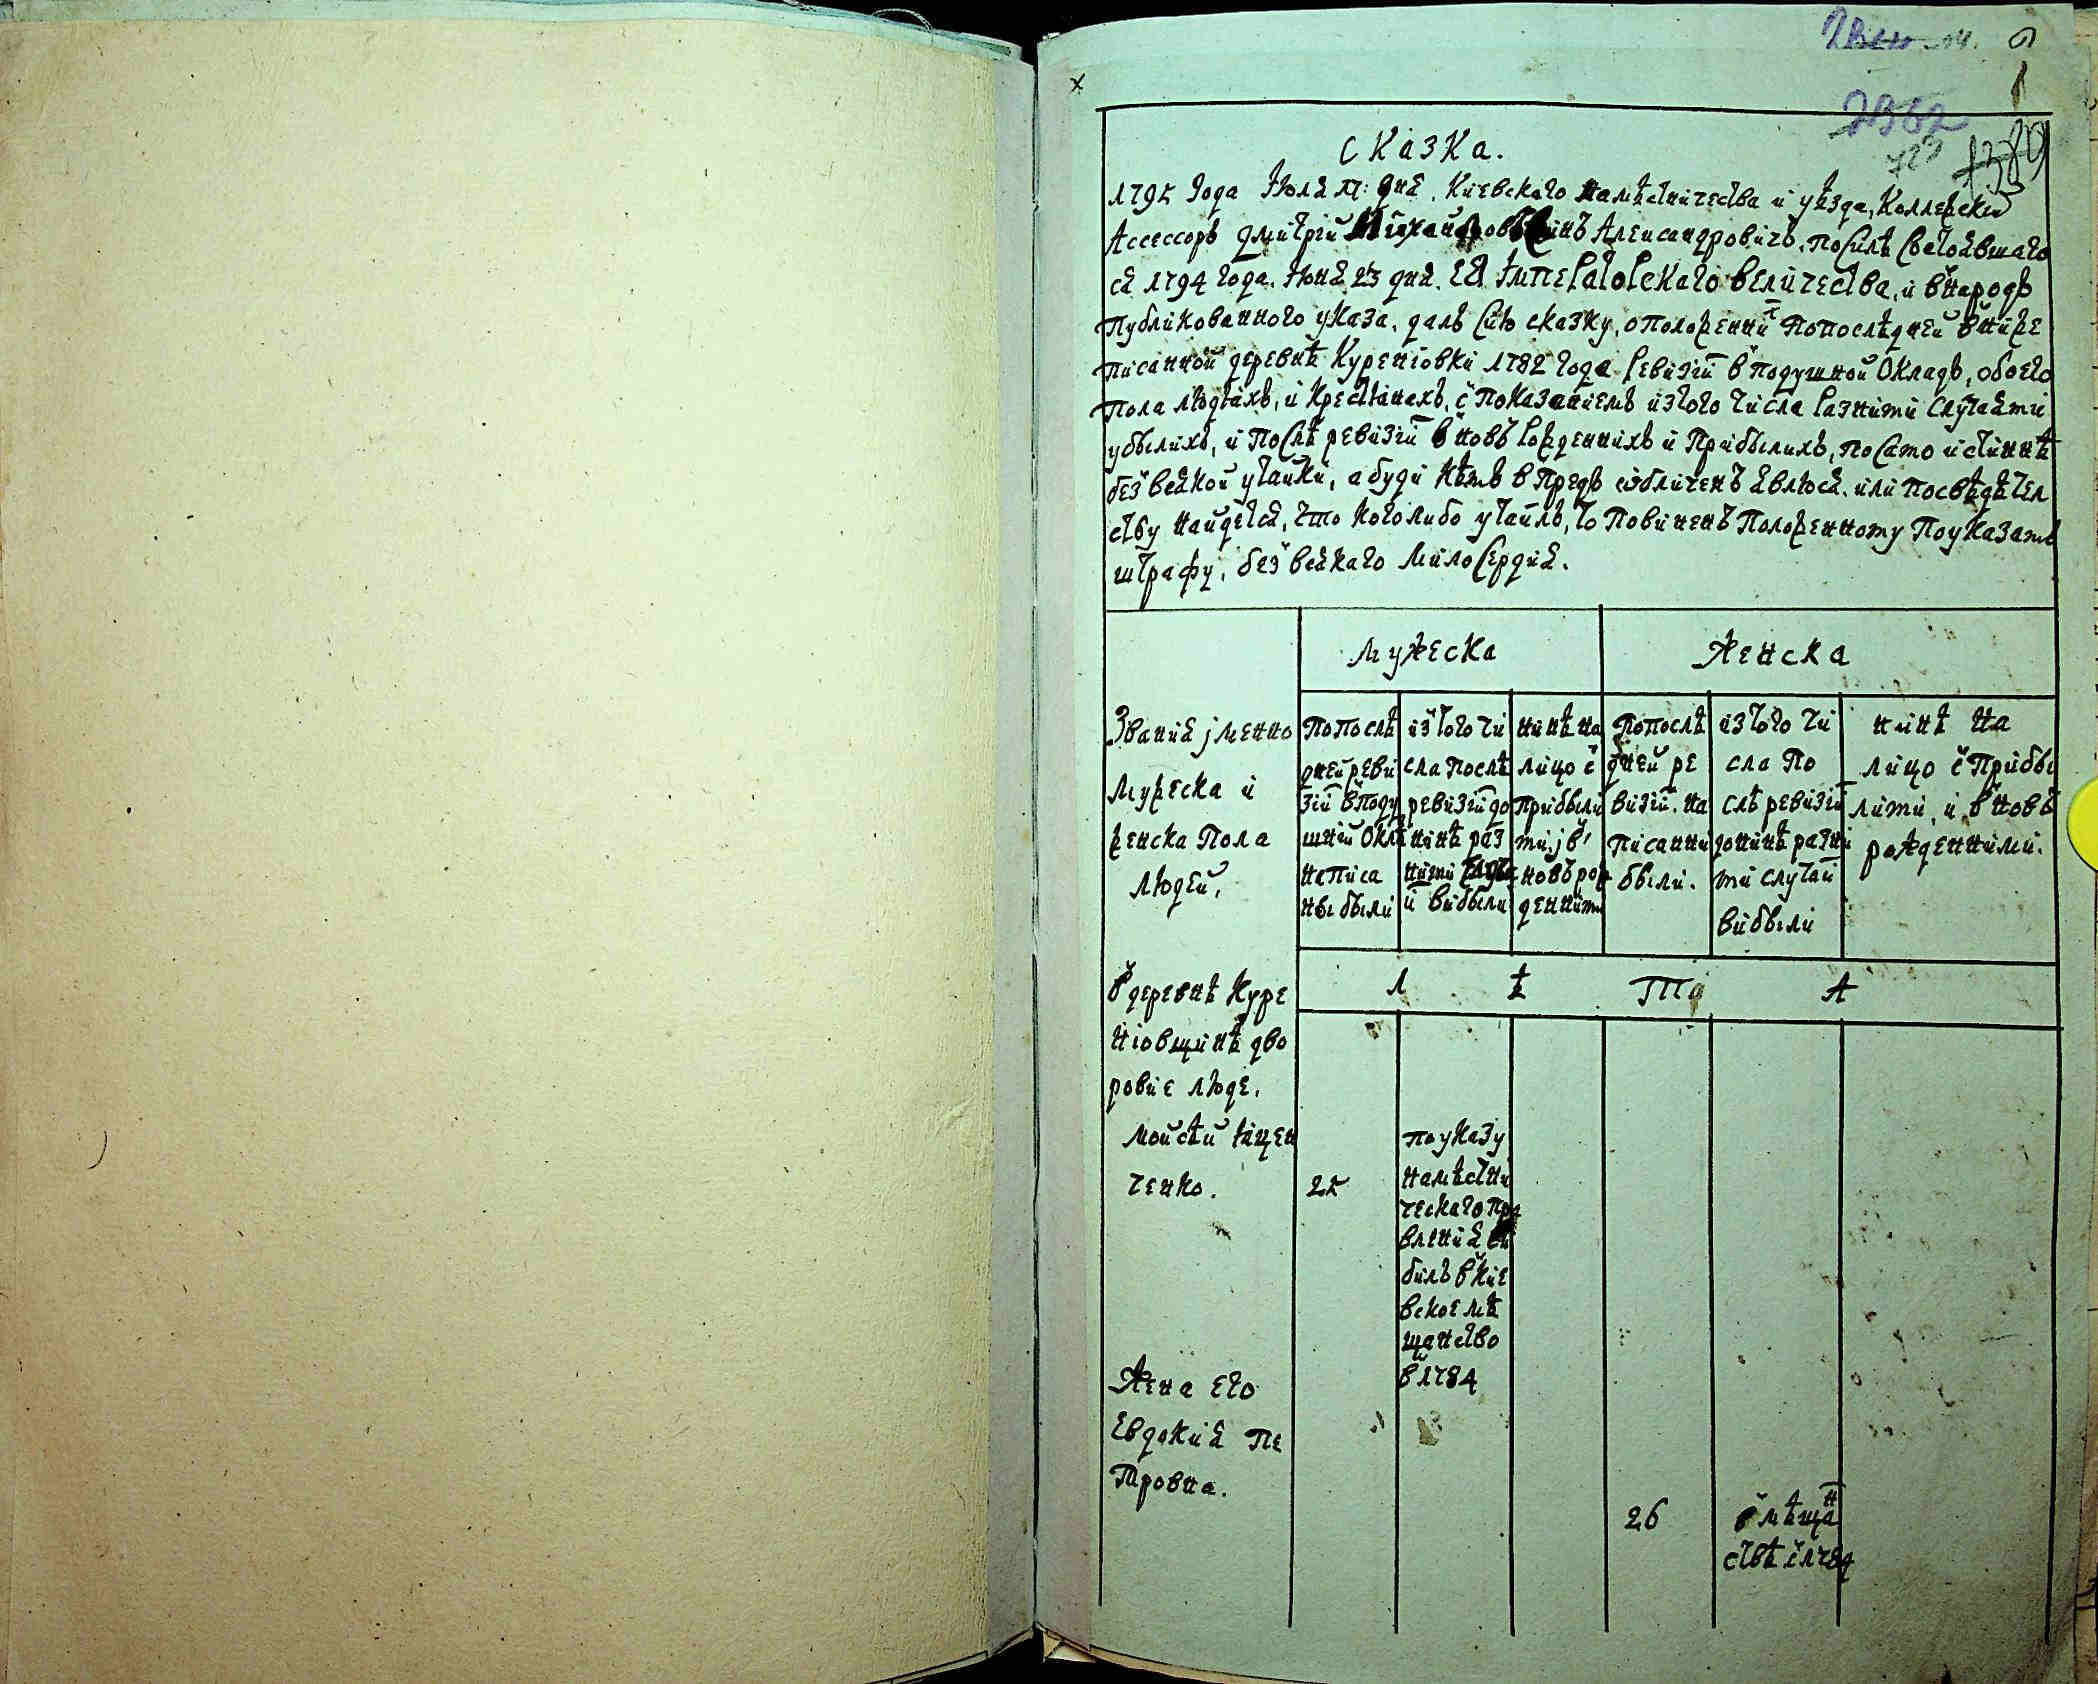 2962
СКАЗКА.
1795 Года Июля дня, Киевского Намѣстничества и уѣзда, Коллежский
Ассессоръ Дмитрий Александровичъ, по силѣ Состоявшаго
ся 1794 года. Июня 23 дня. ЕЯ ІМПЕРАТОРСКАГО ВЕЛИЧЕСТВА, и в народъ
публикованного указа, далъ сию сказку, о положенний по последней в ниже
писанной деревнѣ Куренювки 1782 года Ревизии в подушной Окладъ, обоего
пола людяхъ, и крестянахъ, с показаниемъ из того числа разними случаями
убылихъ, и послѣ ревизии в новъ рожденнихъ и прибылихъ, по само истиннѣ
без всякой утайки, а буди кѣмъ в предъ обличенъ явлюся. или по свѣдѣтел
ству найдется, что кого либо утаилъ, то повиненъ положенному по указамъ
штрафу, без всякаго милосердия.
Мужеска Женска
Звания јменно
Мужеска и
женска пола
людей,
По послѣ
дней реви
зии в поду
шний Окла
написа
ны были
из того чи
сла послѣ
ревизии до
нинѣ раз
ними
вибыли
нинѣ на
лицо с
прибыли
ми, ј в
новъ рож
денними
По послѣ
дней ре
визии. на
писанни
были.
из того чи
сла по
слѣ ревизии
до нинѣ разни
ми случаи
вибыли
нинѣ на
лицо с прибы
лими, и в новъ
рожденними.
В деревнѣ Куре
нювщинѣ дво
ровие люде,
Л Ѣ Т А
Мойсѣй Яцен
ченко.
25
по указу
намѣстни
ческаго пра
вления ви
билъ в Кие
вское мѣ
щанство
в 1784
Жена его
Евдокия Пе
тровна.
26
в мѣщан
ствѣ с 1784